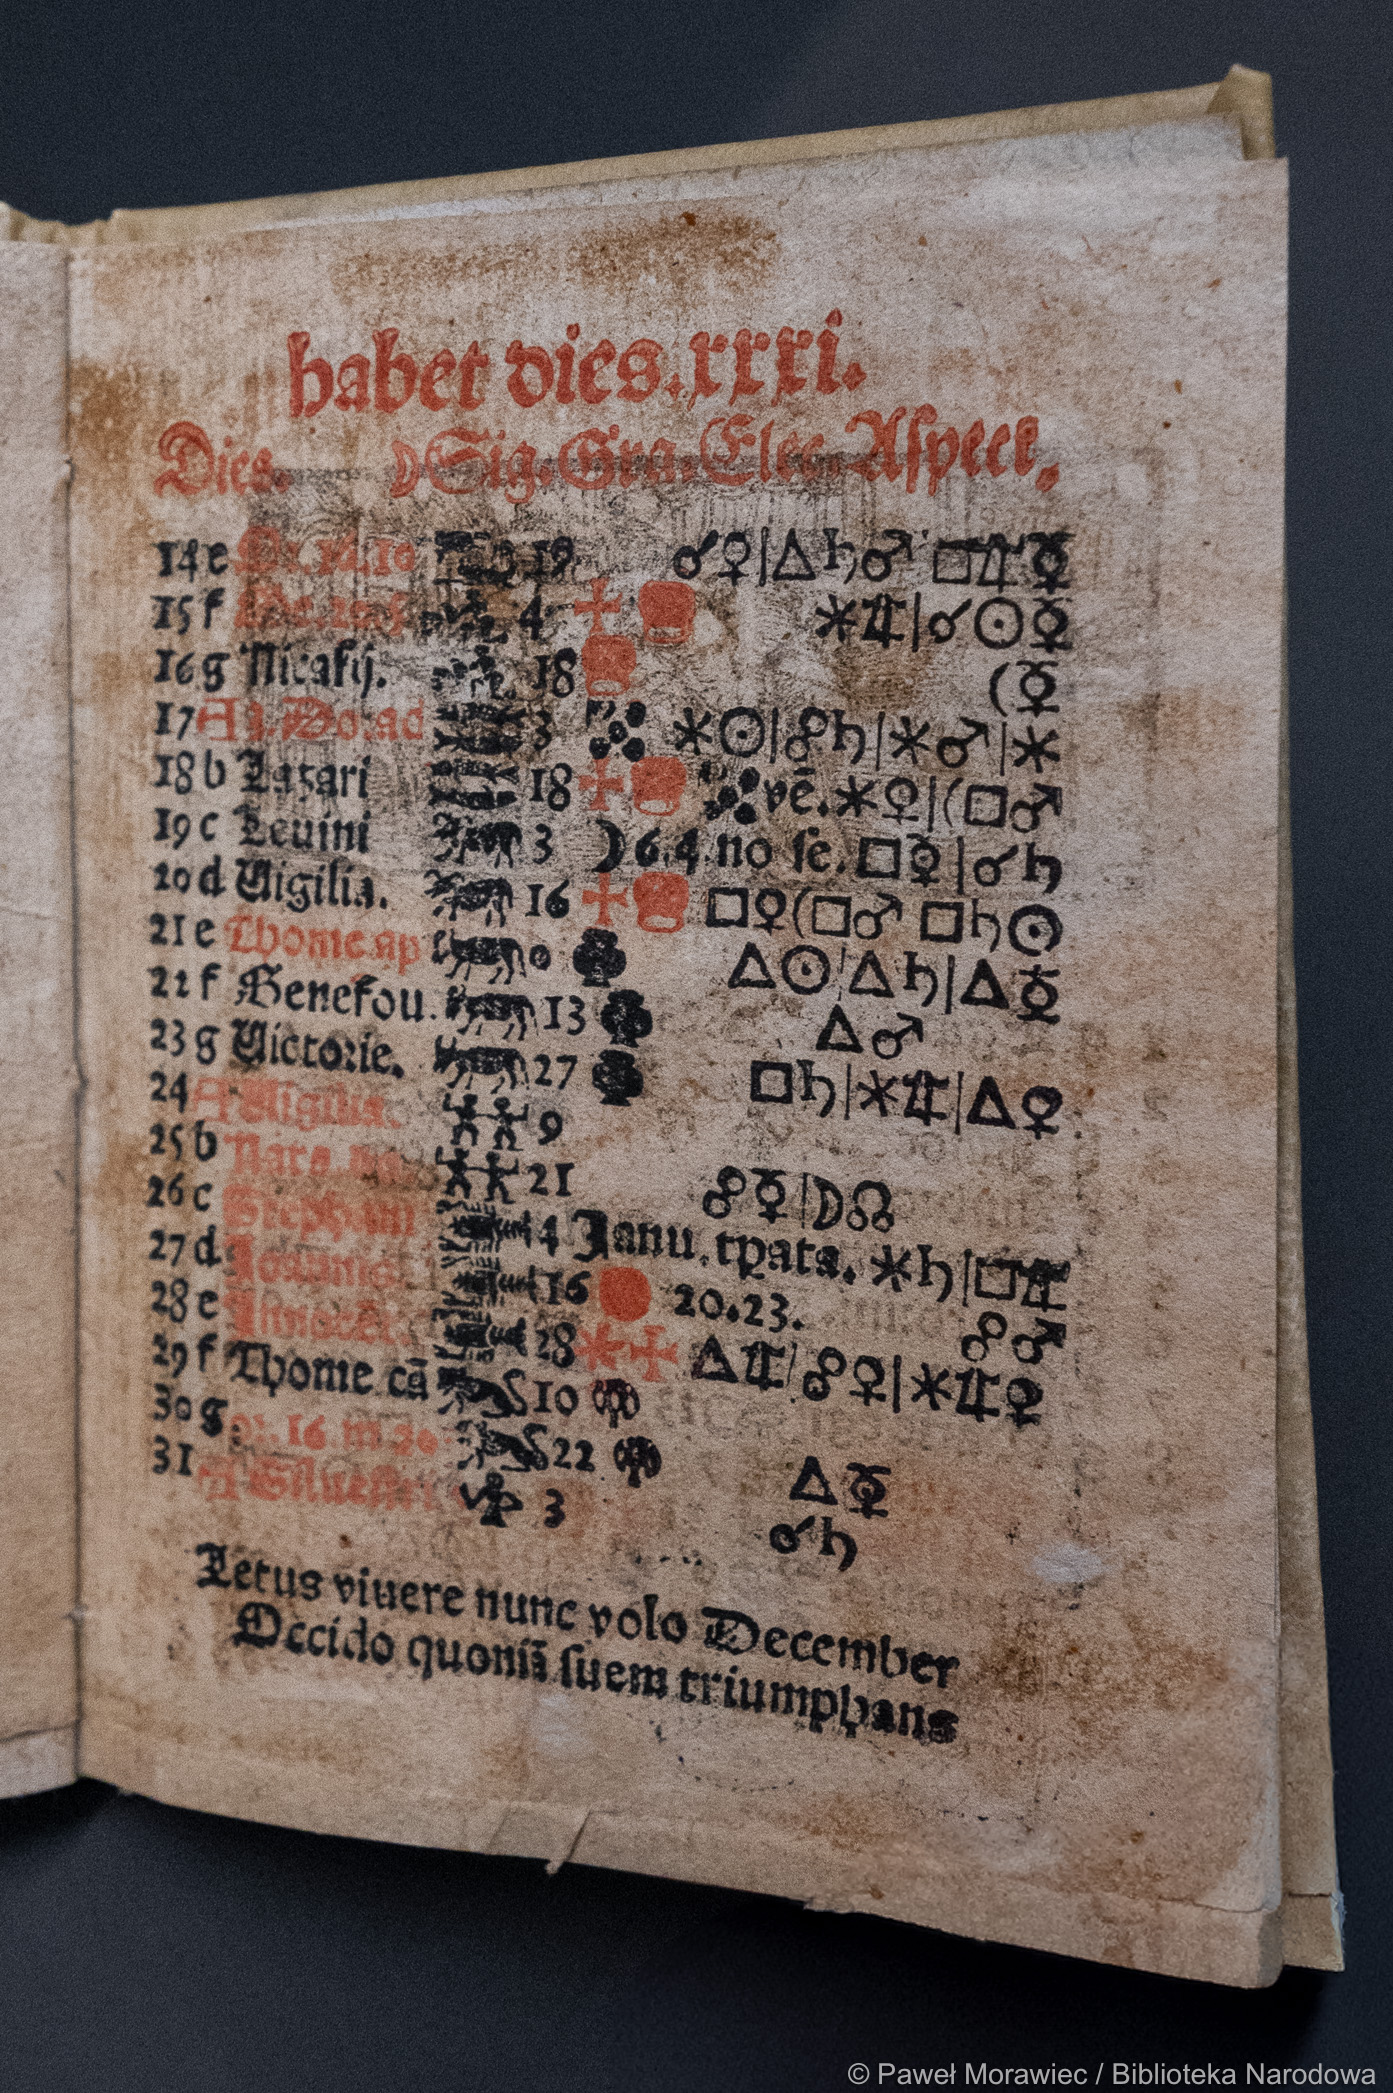 habet dies.xxxi.
Dies. ☽ Sig. Gra. Elec. Aspect.
14 e 19 ☌♀|△♄♂ □♃☿
15 f 4 ✶♃|☌☉☿
16 g Nicasij. 18 (☿
17 A 3 ✶☉|☍♄|✶♂|✶
18 b Lazari 18 vē.✶♀|(□♂
19 c Leuini 3 ☽ 6.4. no se. □☿|☌♄
20 d Uigilia. 16 □♀(□♂ □♄☉
21 e Thome ap 0 △☉|△♄|△☿
22 f 13 △♂
23 g Uictorie. 27 □♄|✶♃|△♀
24 A Uigilia. 9
25 b 21 ☍☿|☽☊
26 c Stephani 4 Janu. tꝑata. ✶♄|□♃
27 d 16 20.23. ☍♂
28 e 28 △♃|☍♀|✶♃☿
29 f Thome cā 10
30 g 16 m 22 △☿
31 A Siluestri 3 ☌♄
Letus viuere nunc volo December
Occido quoniā suem triumphans
© Paweł Morawiec / Biblioteka Narodowa